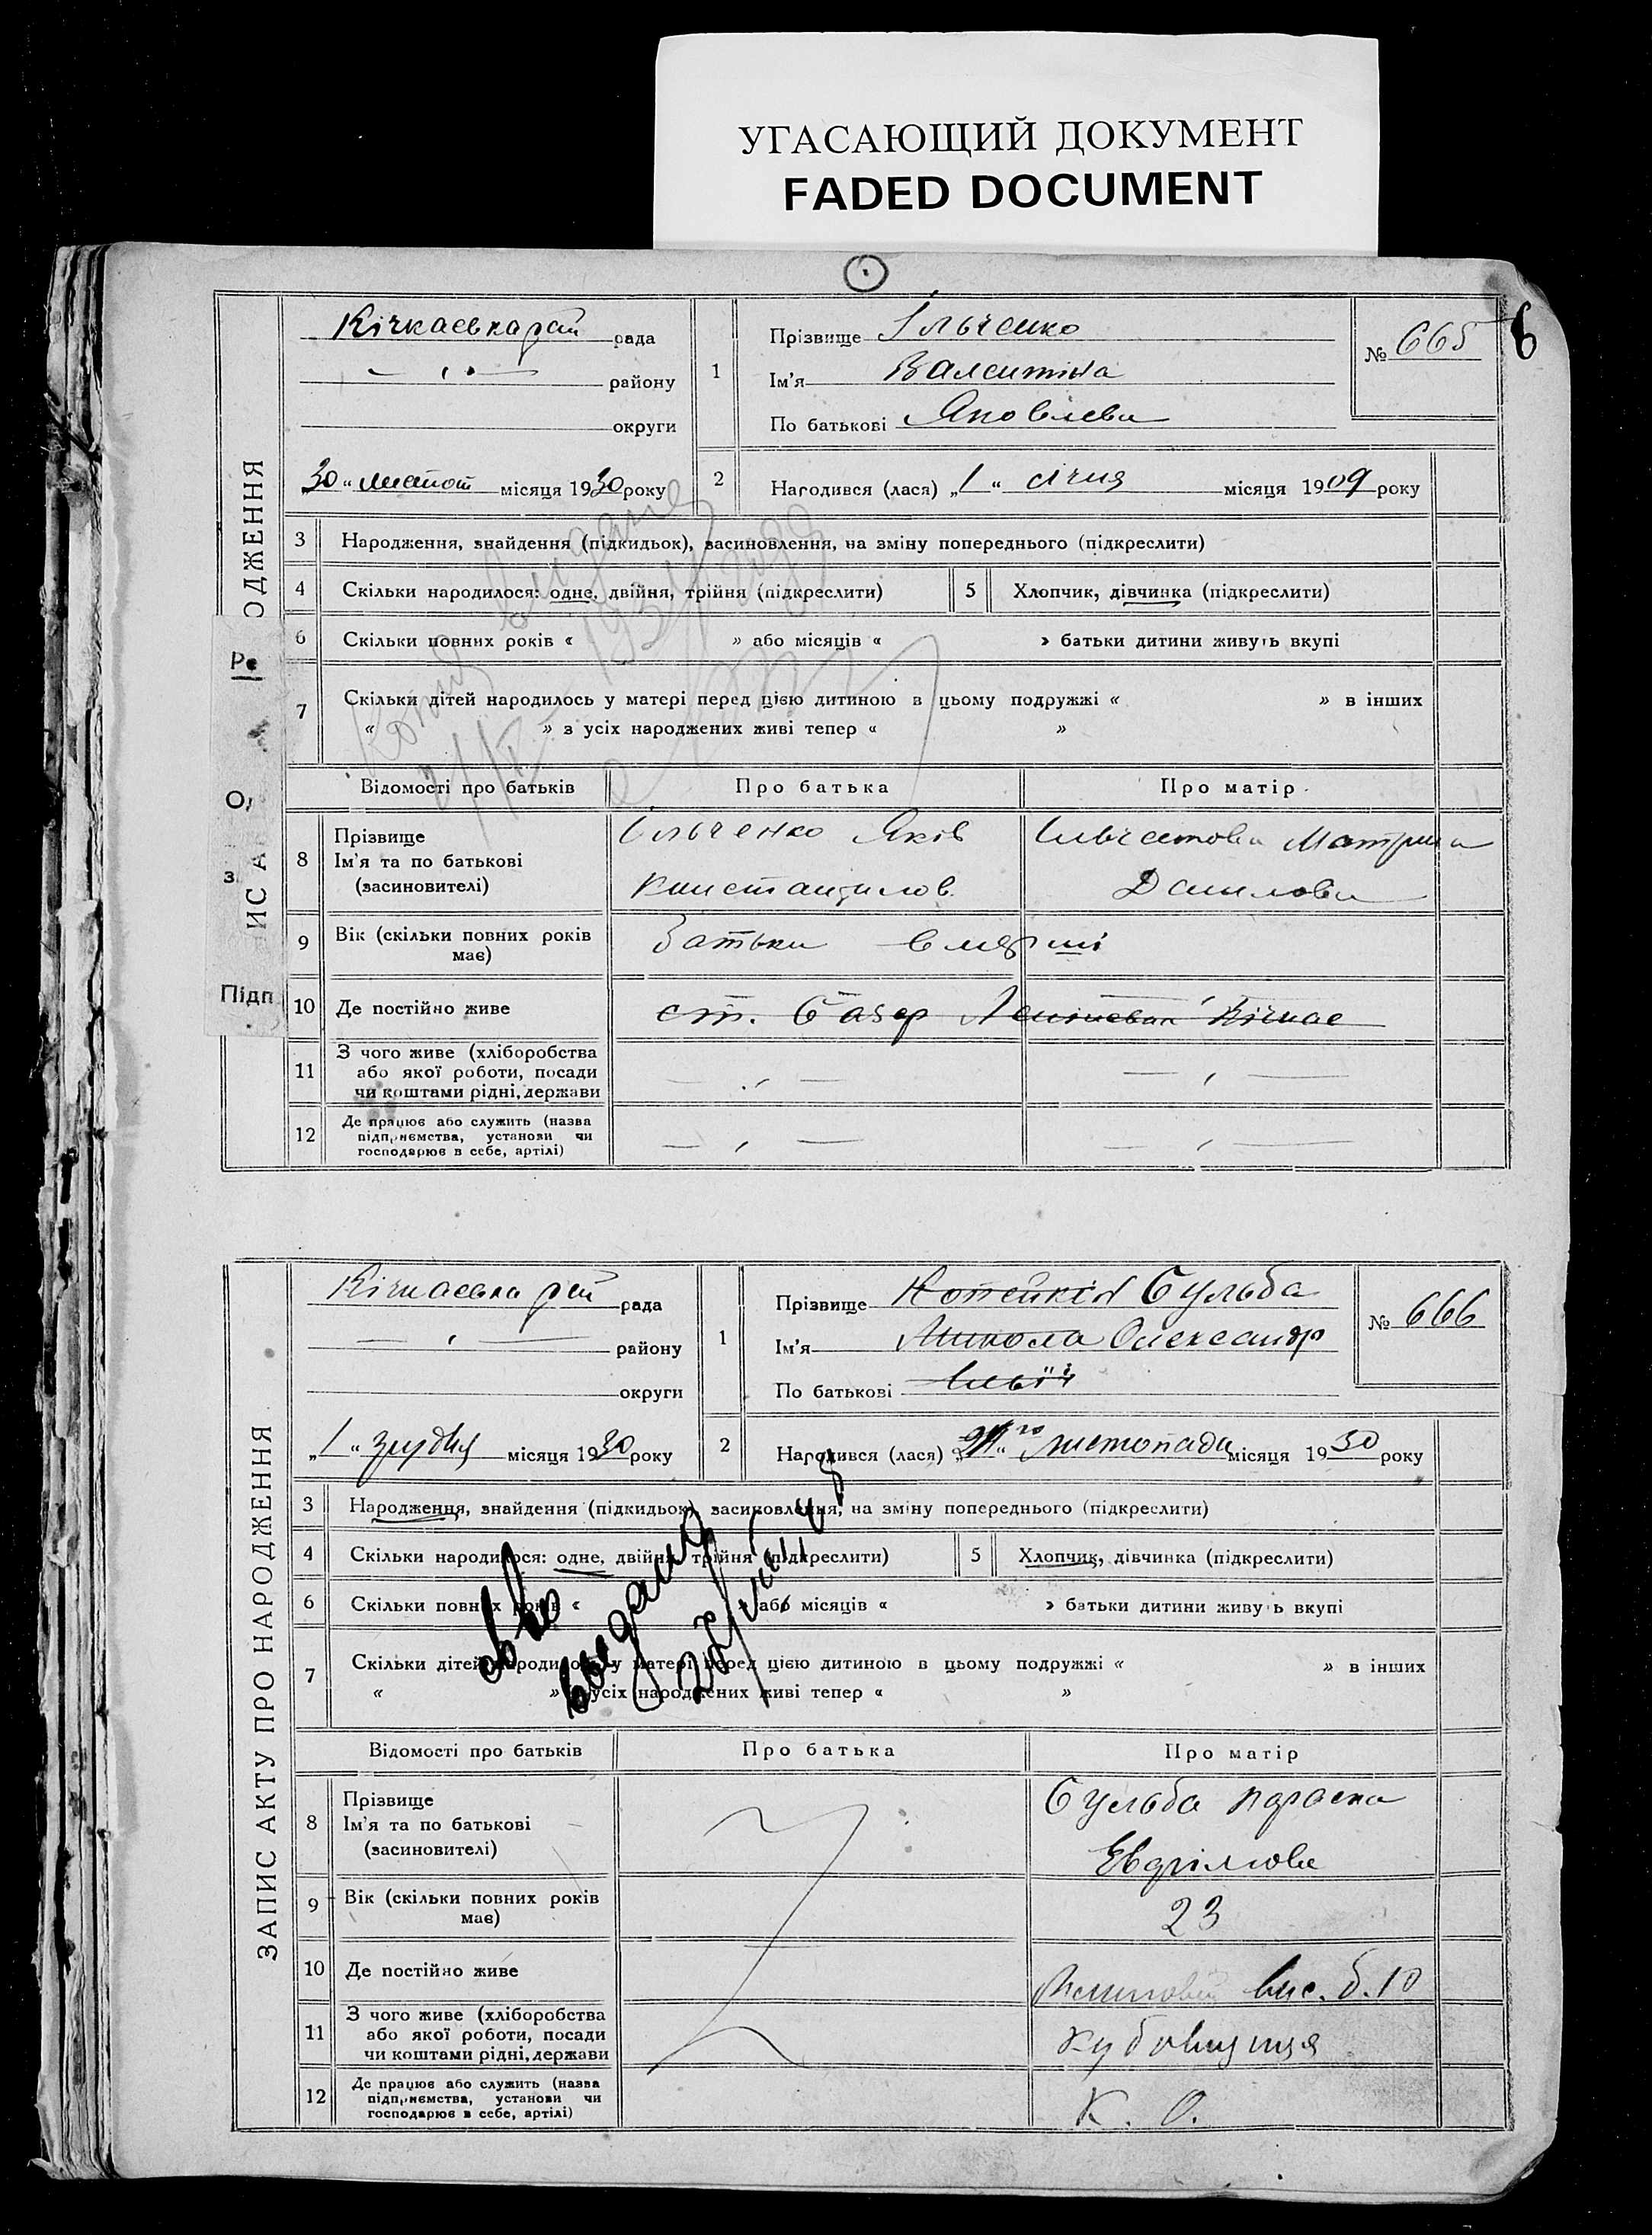 УГАСАЮЩИЙ ДОКУМЕНТ
FADED DOCUMENT
6
ОДЖЕННЯ
ИС А
Ре
О
з
Підп
Кічкаевка рай рада
— „ — району
округи
30 „ листоп місяця 1930 року
1
Прізвище Ільченко
Ім'я Валентина
По батькові Яковлевн
№ 665
2
Народився (лася) „1“ січня місяця 1909 року
3 Народження, знайдення (підкидьок), засиновлення, на зміну попереднього (підкреслити)
4 Скільки народилося: одне, двійня, трійня (підкреслити)
5 Хлопчик, дівчинка (підкреслити)
6 Скільки повних років « » або місяців « » батьки дитини живуть вкупі
7 Скільки дітей народилось у матері перед цією дитиною в цьому подружжі « » в інших
« » з усіх народжених живі тепер « »
Відомості про батьків Про батька Про матір
8 Прізвище
Ім'я та по батькові
(засиновителі)
Ільченко Яків
Константинов.
Матрина
Данилова
9 Вік (скільки повних років
має)
Батьки вмерші
10 Де постійно живе
ст. базар Кічкас
11 З чого живе (хліборобства
або якої роботи, посади
чи коштами рідні, держави
12 Де працює або служить (назва
підприємства, установи чи
господарює в себе, артілі)
ЗАПИС АКТУ ПРО НАРОДЖЕННЯ
Кічкаевка рай рада
— „ — району
округи
„1“ грудня місяця 1930 року
1
Прізвище Котейкін Бульба
Ім'я Микола Олександр
По батькові Ільїч
№ 666
2
Народився (лася) листопада місяця 1930 року
3 Народження, знайдення (підкидьок), засиновлення, на зміну попереднього (підкреслити)
4 Скільки народилося: одне, двійня, трійня (підкреслити)
5 Хлопчик, дівчинка (підкреслити)
6 Скільки повних років « » або місяців « » батьки дитини живуть вкупі
7 Скільки дітей народилось у матері перед цією дитиною в цьому подружжі « » в інших
« » з усіх народжених живі тепер « »
Відомості про батьків Про батька Про матір
8 Прізвище
Ім'я та по батькові
(засиновителі)
Бульба Параска
9 Вік (скільки повних років
має)
23
10 Де постійно живе
б. 10
11 З чого живе (хліборобства
або якої роботи, посади
чи коштами рідні, держави
12 Де працює або служить (назва
підприємства, установи чи
господарює в себе, артілі)
К. О.